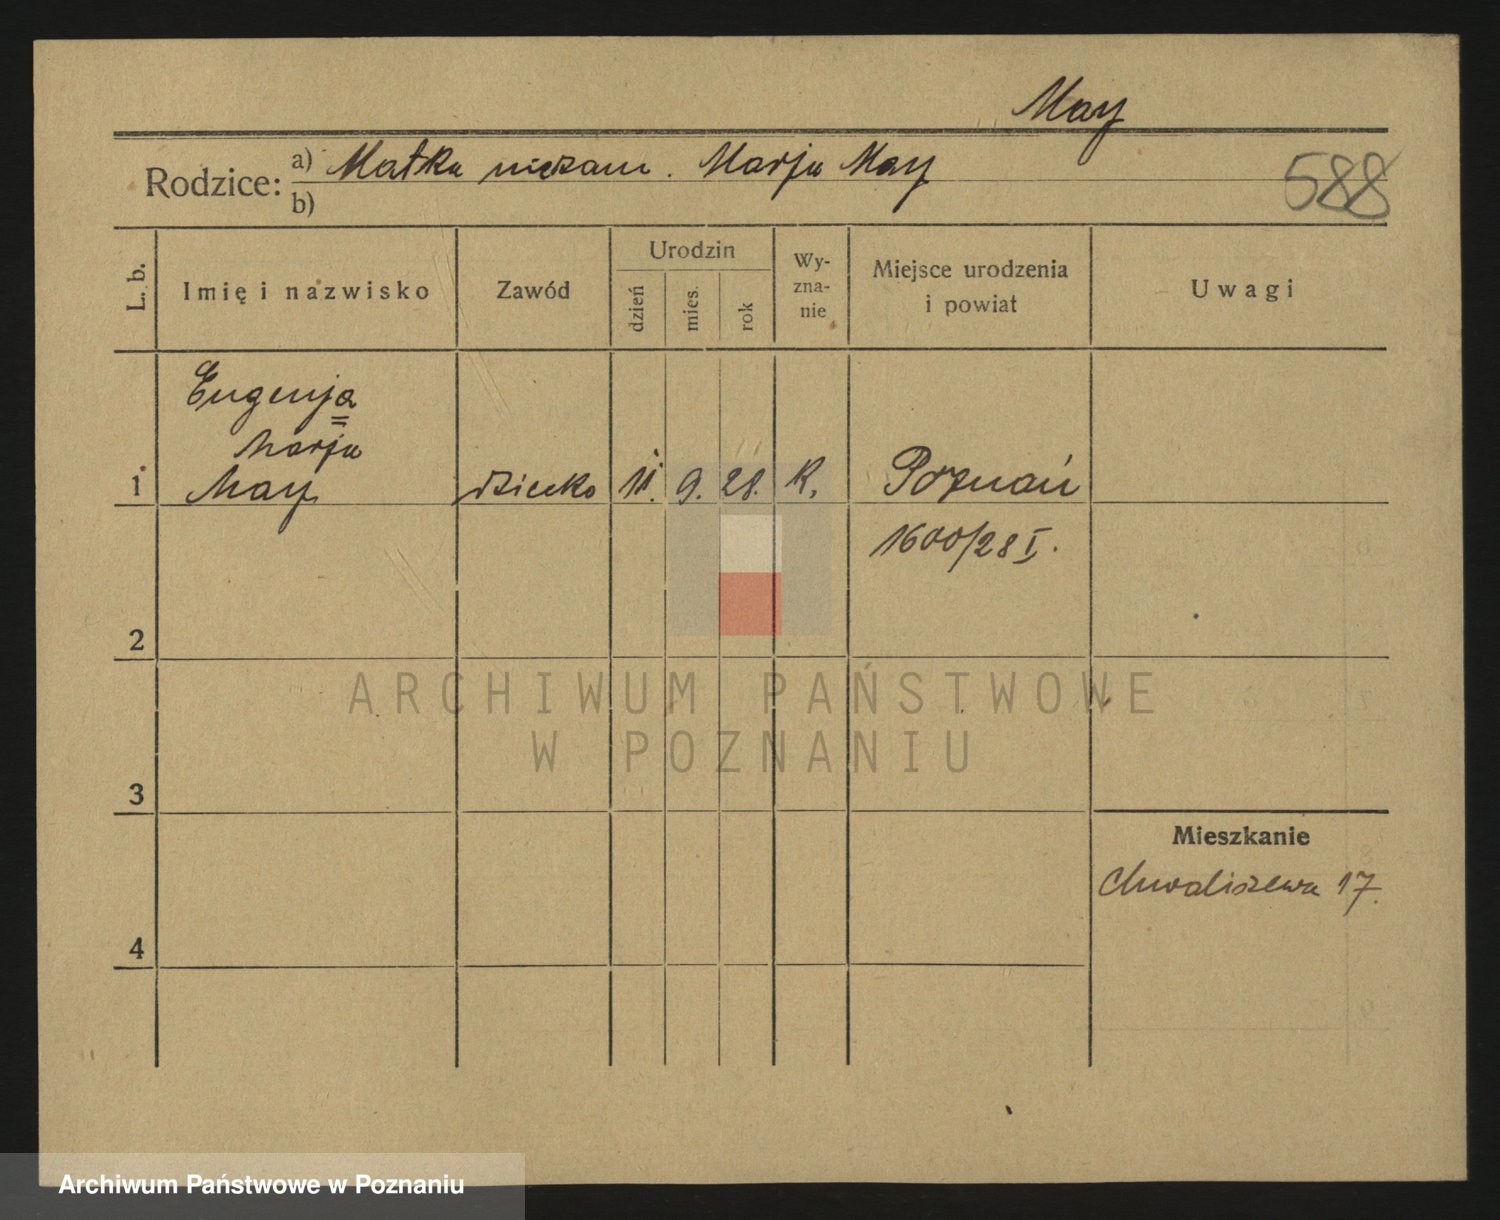 May
Rodzice: a) Matka niezam. Marja May
b)
588
L. b.
Imię i nazwisko
Zawód
Urodzin
dzień
mies.
rok
Wy-
zna-
nie
Miejsce urodzenia
i powiat
Uwagi
Eugenja
Marja
1 May dziecko 11. 9. 28. K. Poznań
1600/28 I.
2
3
4
Mieszkanie
Chwaliszewa 17.
ARCHIWUM PAŃSTWOWE
W POZNANIU
Archiwum Państwowe w Poznaniu